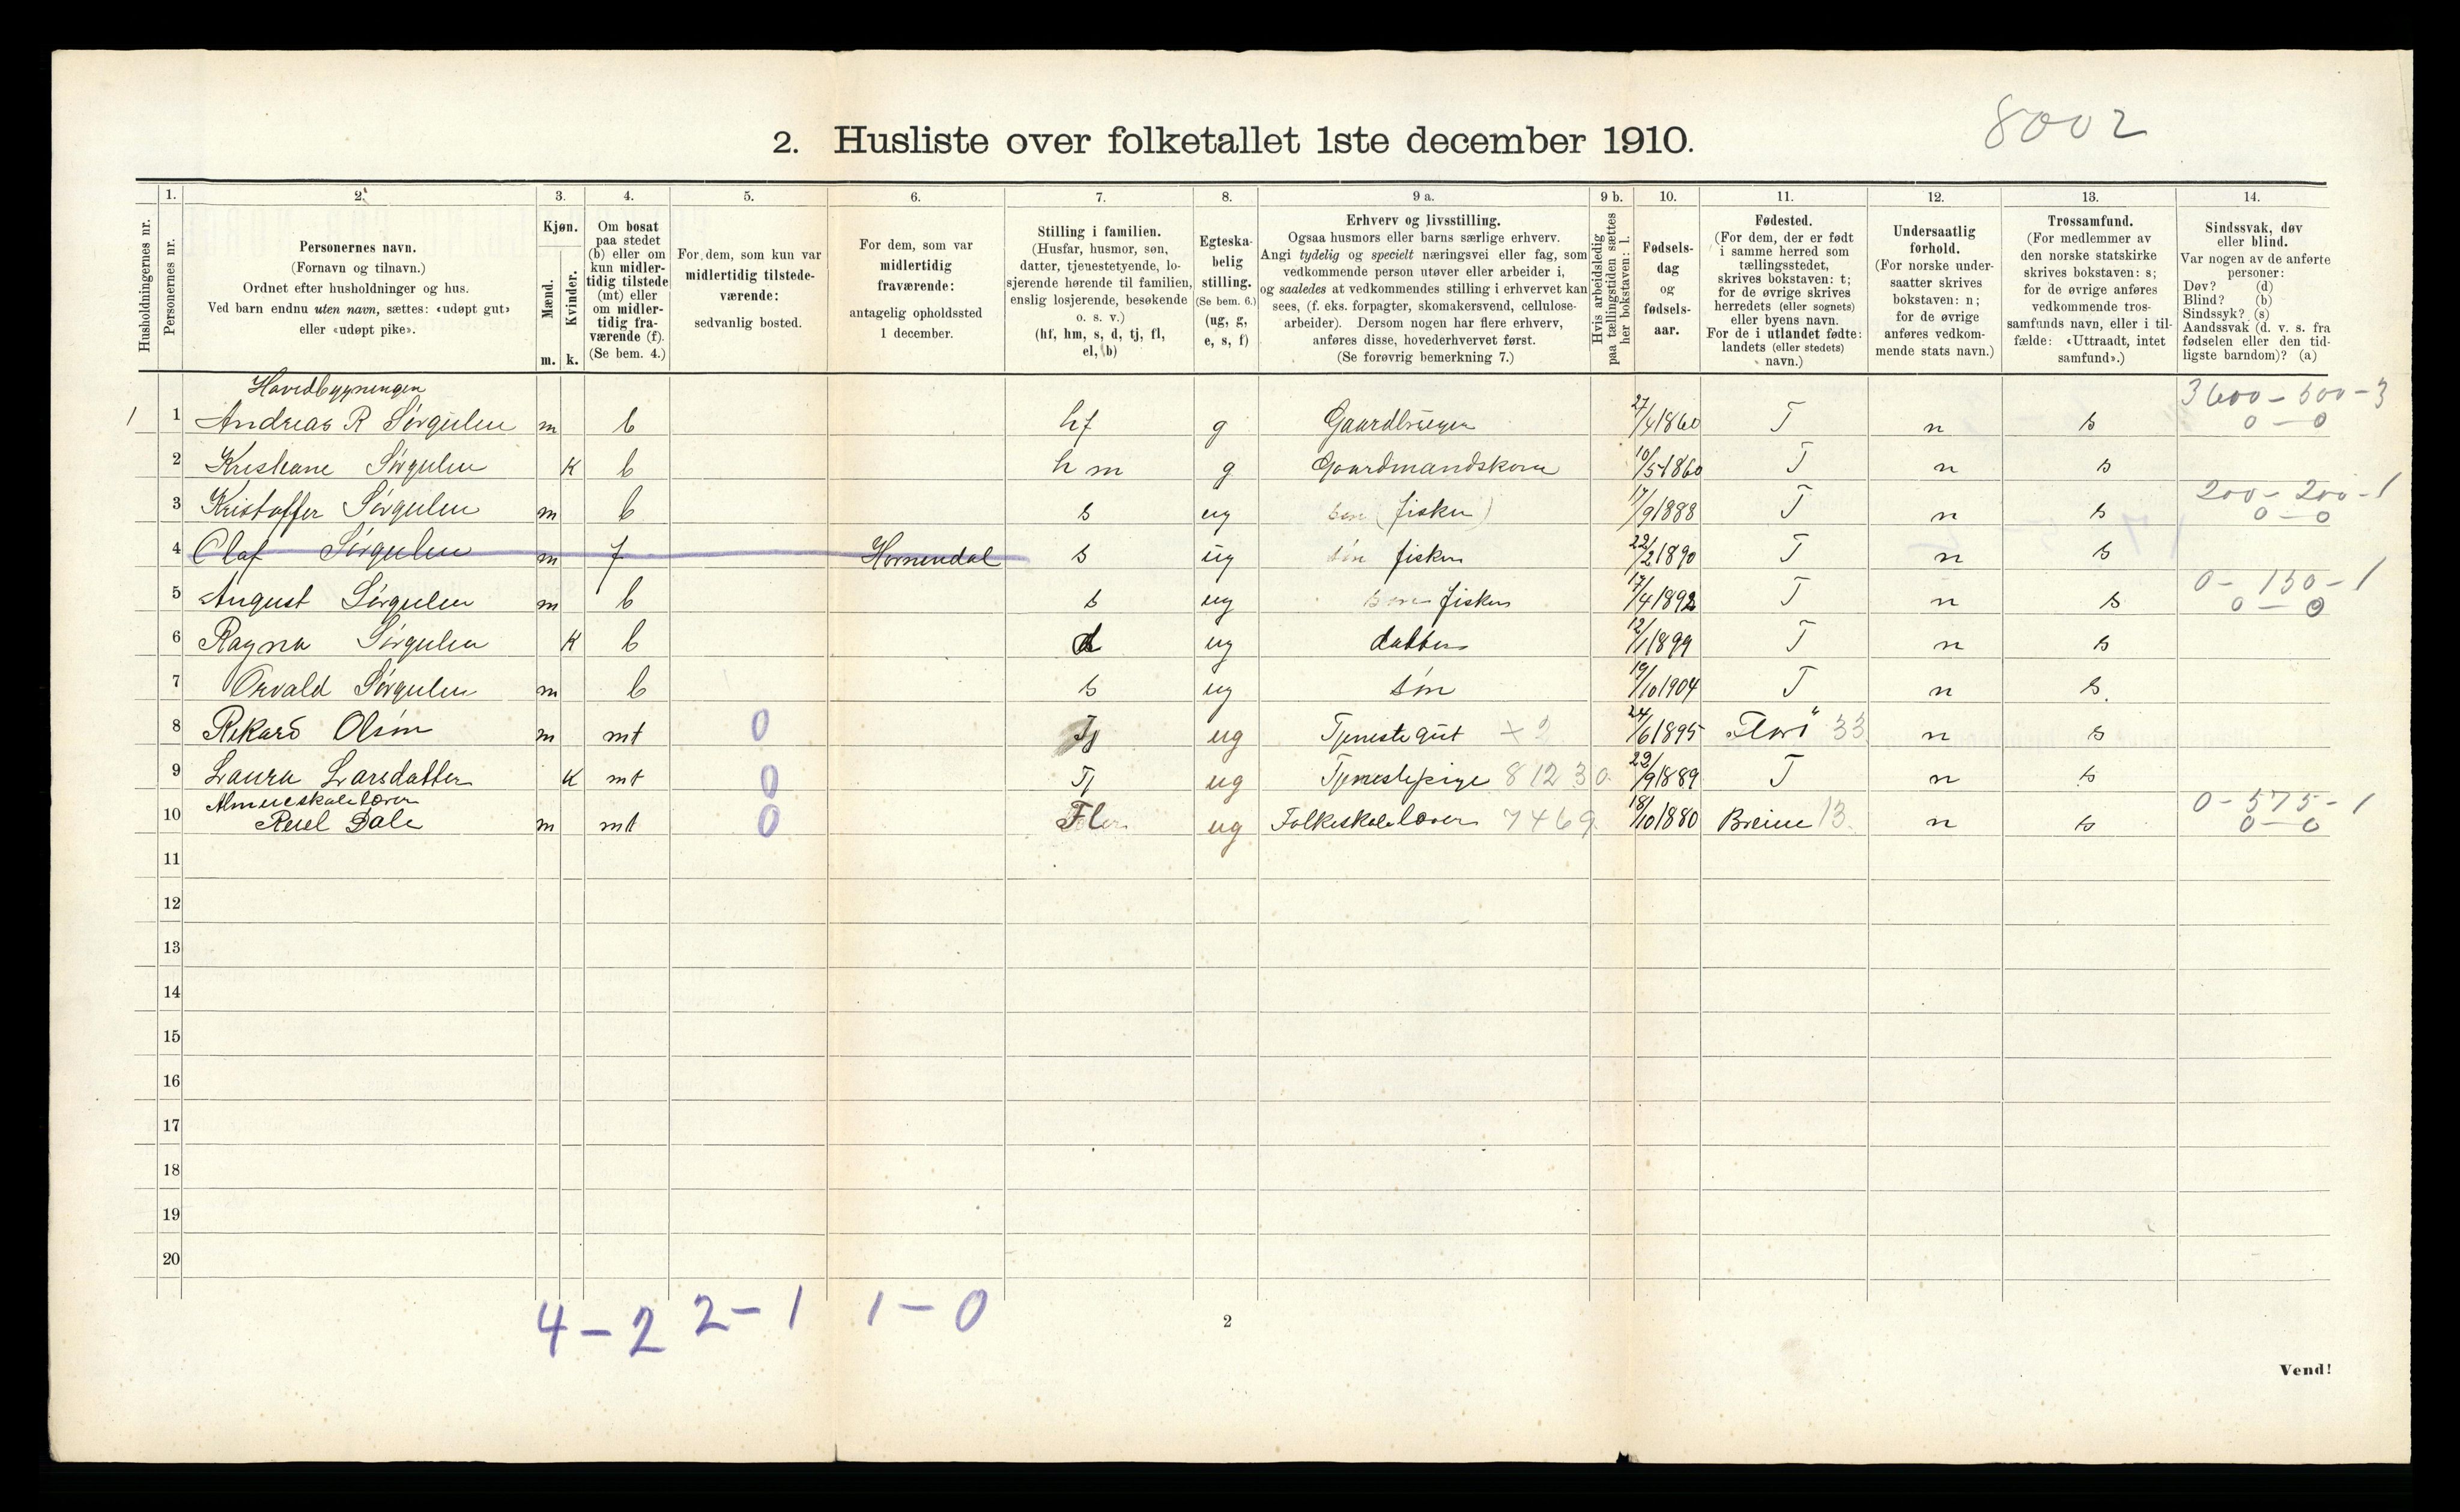 8002
2. Husliste over folketallet 1ste december 1910.
Husholdningernes nr.
1. Personernes nr.
2. Personernes navn.
(Fornavn og tilnavn.)
Ordnet efter husholdninger og hus.
Ved barn endnu uten navn, sættes: «udøpt gut»
eller «udøpt pike».
3. Kjøn.
Mænd. m.
Kvinder. k.
4. Om bosat
paa stedet
(b) eller om
kun midler-
tidig tilstede
(mt) eller
om midler-
tidig fra-
værende (f).
(Se bem. 4.)
5. For dem, som kun var
midlertidig tilstede-
værende:
sedvanlig bosted.
6. For dem, som var
midlertidig
fraværende:
antagelig opholdssted
1 december.
7. Stilling i familien.
(Husfar, husmor, søn,
datter, tjenestetyende, lo-
sjerende hørende til familien,
enslig losjerende, besøkende
o. s. v.)
(hf, hm, s, d, tj, fl,
el, b)
8. Egteska-
belig
stilling.
(Se bem. 6.)
(ug, g,
e, s, f)
9 a. Erhverv og livsstilling.
Ogsaa husmors eller barns særlige erhverv.
Angi tydelig og specielt næringsvei eller fag, som
vedkommende person utøver eller arbeider i,
og saaledes at vedkommendes stilling i erhvervet kan
sees, (f. eks. forpagter, skomakersvend, cellulose-
arbeider). Dersom nogen har flere erhverv,
anføres disse, hovederhvervet først.
(Se forøvrig bemerkning 7.)
9 b. Hvis arbeidsledig
paa tællingstiden sættes
her bokstaven: l.
10. Fødsels-
dag
og
fødsels-
aar.
11. Fødested.
(For dem, der er født
i samme herred som
tællingsstedet,
skrives bokstaven: t;
for de øvrige skrives
herredets (eller sognets)
eller byens navn.
For de i utlandet fødte:
landets (eller stedets)
navn.)
12. Undersaatlig
forhold.
(For norske under-
saatter skrives
bokstaven: n;
for de øvrige
anføres vedkom-
mende stats navn.)
13. Trossamfund.
(For medlemmer av
den norske statskirke
skrives bokstaven: s;
for de øvrige anføres
vedkommende tros-
samfunds navn, eller i til-
fælde: «Uttraadt, intet
samfund».)
14. Sindssvak, døv
eller blind.
Var nogen av de anførte
personer:
Døv? (d)
Blind? (b)
Sindssyk? (s)
Aandssvak (d. v. s. fra
fødselen eller den tid-
ligste barndom)? (a)
Hovedbygningen 3600 - 500 - 3
1 1 Andreas R Sørgulen m b hf g Gaardbruger 27/4 1860 T n s 0 - 0
2 Kristiane Sørgulen K b hm g Gaardmandskone 10/5 1860 T n s
200 - 200 - 1
3 Kristoffer Sørgulen m b s ug søn (fisker) 17/9 1888 T n s 0 - 0
4 Olaf Sørgulen m f Hornendal s ug søn fisker 22/2 1890 T n s
0 - 150 - 1
5 August Sørgulen m b s ug søn fisker 17/4 1892 T n s 0 - 0
6 Ragna Sørgulen K b d ug datter 12/1 1899 T n s
7 Osvald Sørgulen m b s ug søn 19/10 1904 T n s.
8 Rikard Olsøn m mt 0 Tj ug Tjenestegut x 2 24/6 1895 Florø 33 n s
9 Laura Larsdatter K mt 0 Tj ug Tjenestepige 8 12 30. 29/9 1889 T n s
Almueskolelærer 0 - 575 - 1
10 Dale m mt 0 Fl ug Folkeskolelærer 7469 18/10 1880 Breim 13. n s 0 - 0
11
12
13
14
15
16
17
18
19
20
4 - 2 2 - 1 1 - 0
2
Vend!